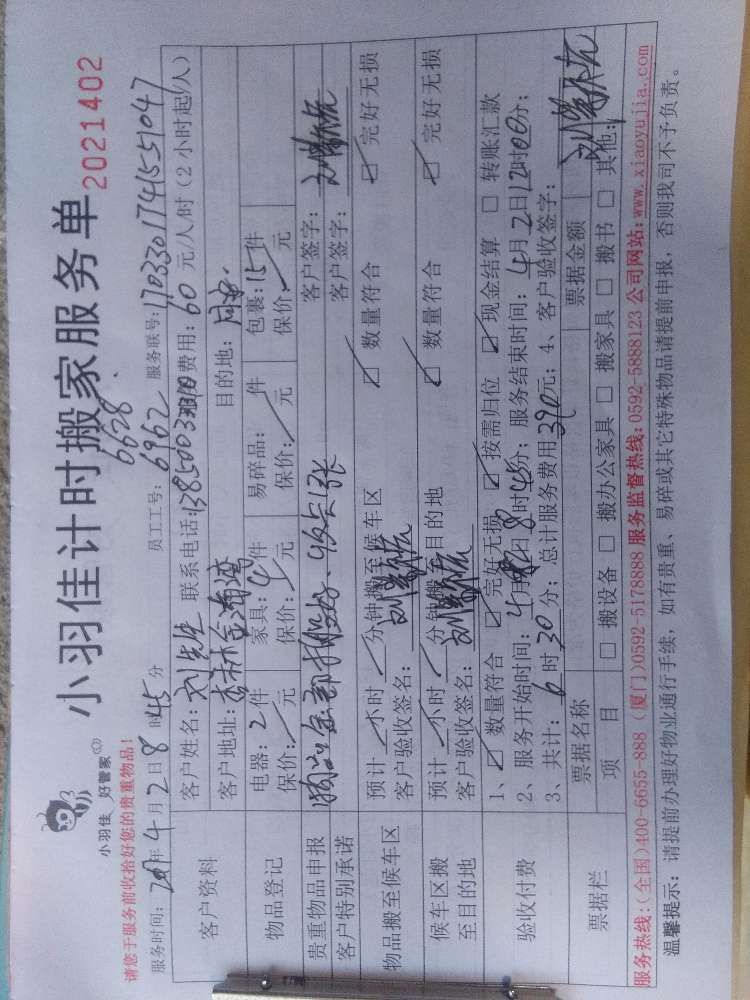 小羽佳 好管家
小羽佳计时搬家服务单
2021402
请您于服务前收拾好您的贵重物品!
6628.
服务时间: 年4月2日8时45分 员工工号: 6962 服务联号: 1703301741551047
客户资料
客户姓名: 刘先生 联系电话: 费用: 60元/人/时(2小时起/人)
客户地址: 目的地:
物品登记
电器: 2件 家具: 4件 易碎品: 件 包裹: 15件
保价: 元 保价: 元 保价: 元 保价: 元
贵重物品申报
客户特别承诺
客户签字:
客户签字:
物品搬至候车区
预计 小时 分钟搬至候车区 数量符合 完好无损
客户验收签名:
候车区搬至目的地
预计 小时 分钟搬至目的地 数量符合 完好无损
客户验收签名:
验收付费
1、 数量符合 完好无损 按需归位 现金结算 转账汇款
2、服务开始时间: 4月 日8时45分; 服务结束时间: 4月2日12时00分;
3、共计: 6时30分; 总计服务费用390元; 4、客户验收签字:
票据栏
票据名称 票据金额
项目 搬设备 搬办公家具 搬家具 搬书 其他:
服务热线:(全国)400-6655-888 (厦门)0592-5178888 服务监督热线:0592-5888123 公司网站:www.xiaoyujia.com
温馨提示: 请提前办理好物业通行手续, 如有贵重、易碎或其它特殊物品请提前申报, 否则我司不予负责。